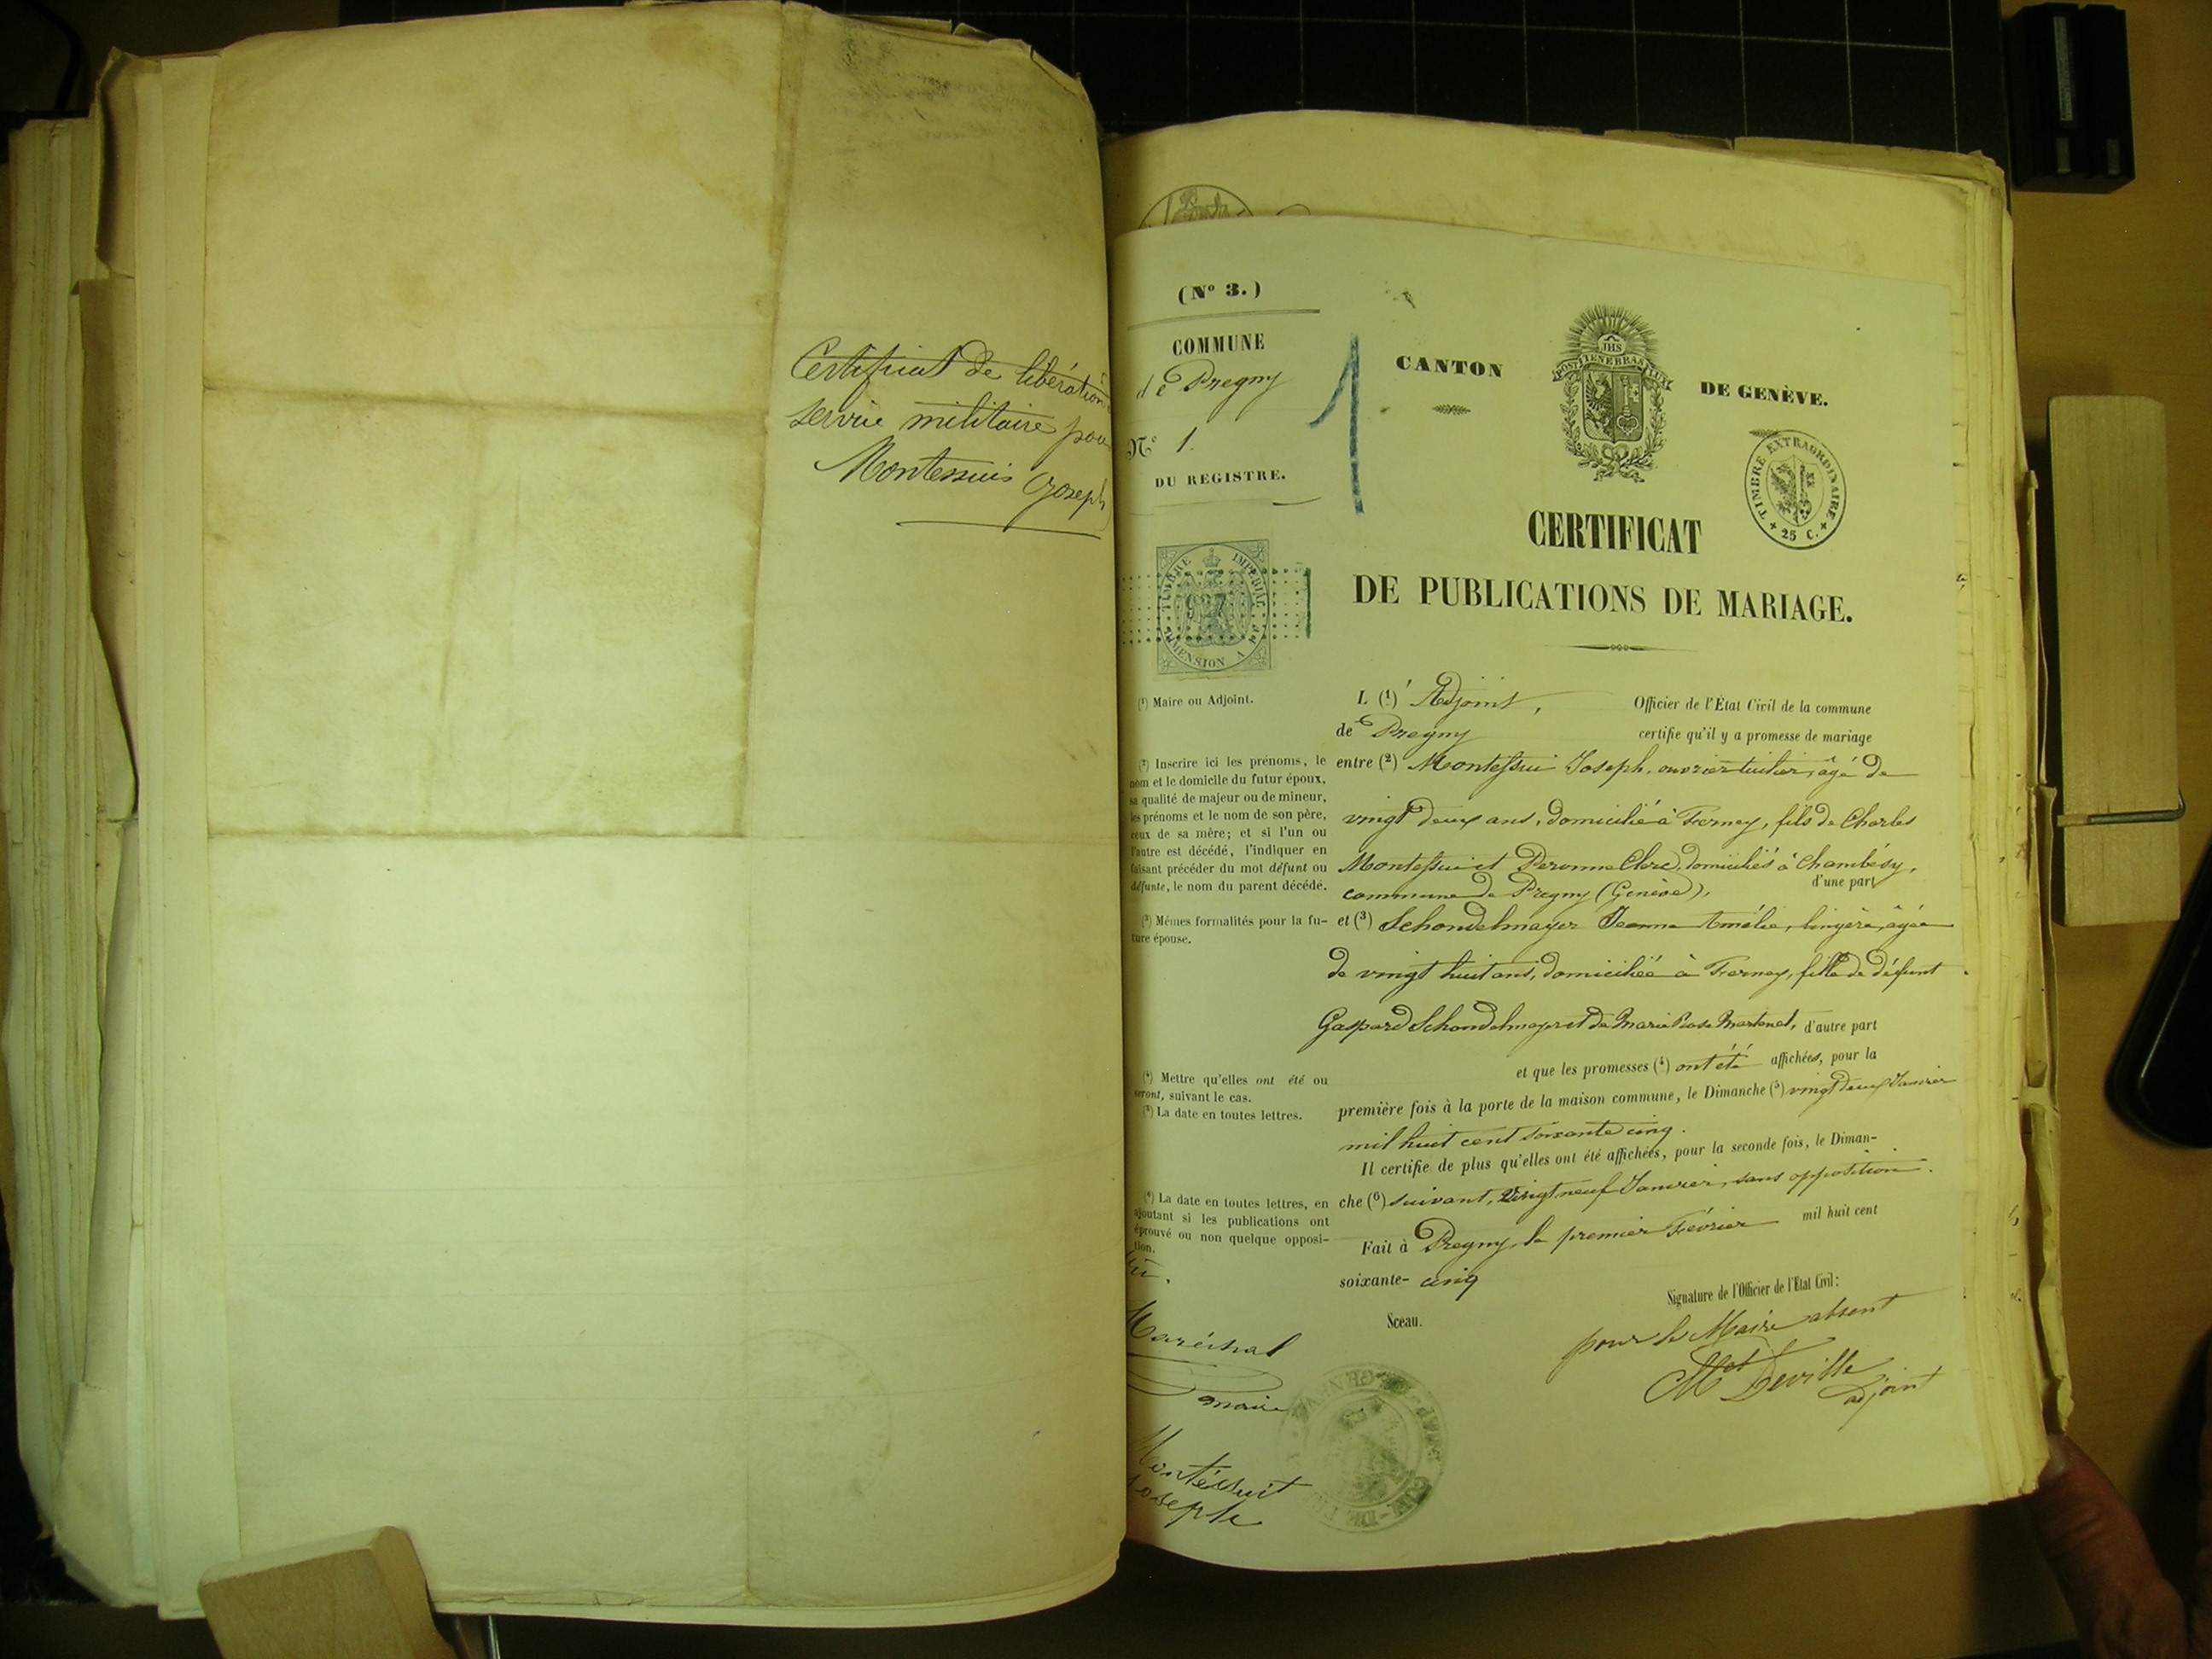 Certificat de libération
service militaire pour
Montessuis Joseph
(Nº 3.)
COMMUNE
de Pregny
Nº 1.
DU REGISTRE.
1
CANTON
DE GENÈVE.
JHS
POST TENEBRAS LUX
TIMBRE EXTRAORDINAIRE
25 C.
CERTIFICAT
DE PUBLICATIONS DE MARIAGE.
TIMBRE IMPÉRIAL
927
DIMENSION A
(1) Maire ou Adjoint.
L (1) ' Adjoint, Officier de l'État Civil de la commune
de Pregny certifie qu'il y a promesse de mariage
(2) Inscrire ici les prénoms, le
nom et le domicile du futur époux,
sa qualité de majeur ou de mineur,
les prénoms et le nom de son père,
ceux de sa mère; et si l'un ou
l'autre est décédé, l'indiquer en
faisant précéder du mot défunt ou
défunte, le nom du parent décédé.
entre (2) Montessui Joseph, ouvrier tuilier, âgé de
vingt deux ans, domicilié à Ferney, fils de Charles
Montessui et Peronne Clerc, domiciliés à Chambésy,
commune de Pregny (Genève), d'une part
(3) Mêmes formalités pour la fu-
ture épouse.
et (3) Schondelmayer Jeanne Amélie, lingère, âgée
de vingt huit ans, domiciliée à Ferney, fille de défunt
Gaspard Schondelmayer et de Marie Rose Martenet, d'autre part
(4) Mettre qu'elles ont été ou
seront, suivant le cas.
(5) La date en toutes lettres.
et que les promesses (4) ont été affichées, pour la
première fois à la porte de la maison commune, le Dimanche (5) vingt deux Janvier
mil huit cent soixante cinq.
Il certifie de plus qu'elles ont été affichées, pour la seconde fois, le Diman-
che (6) suivant, vingt neuf Janvier, sans opposition.
(6) La date en toutes lettres, en
ajoutant si les publications ont
éprouvé ou non quelque opposi-
tion.
Fait à Pregny, le premier Février mil huit cent
soixante- cinq
Sceau.
Signature de l'Officier de l'État Civil:
pour le Maire absent
Mct Deville
adjoint
Maréchal
maire
Montéssuit
Joseph